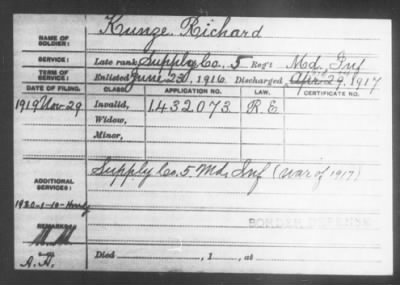 NAME OF SOLDIER: Kunze Richard
SERVICE: Late rank Supply Co., 5 Reg't Md. Inf
TERM OF SERVICE: Enlisted June 23, 1916 Discharged Apr 29, 1917
DATE OF FILING. CLASS. APPLICATION NO. LAW. CERTIFICATE NO.
1919 Nov-29 Invalid, 1.432.073. R.E.
Widow,
Minor,
ADDITIONAL SERVICES: Supply Co. 5. Md. Inf (War of 1917)
1920-1-10-
BORDER DEFENSE
REMARKS:
Died , 1 , at
A.H.